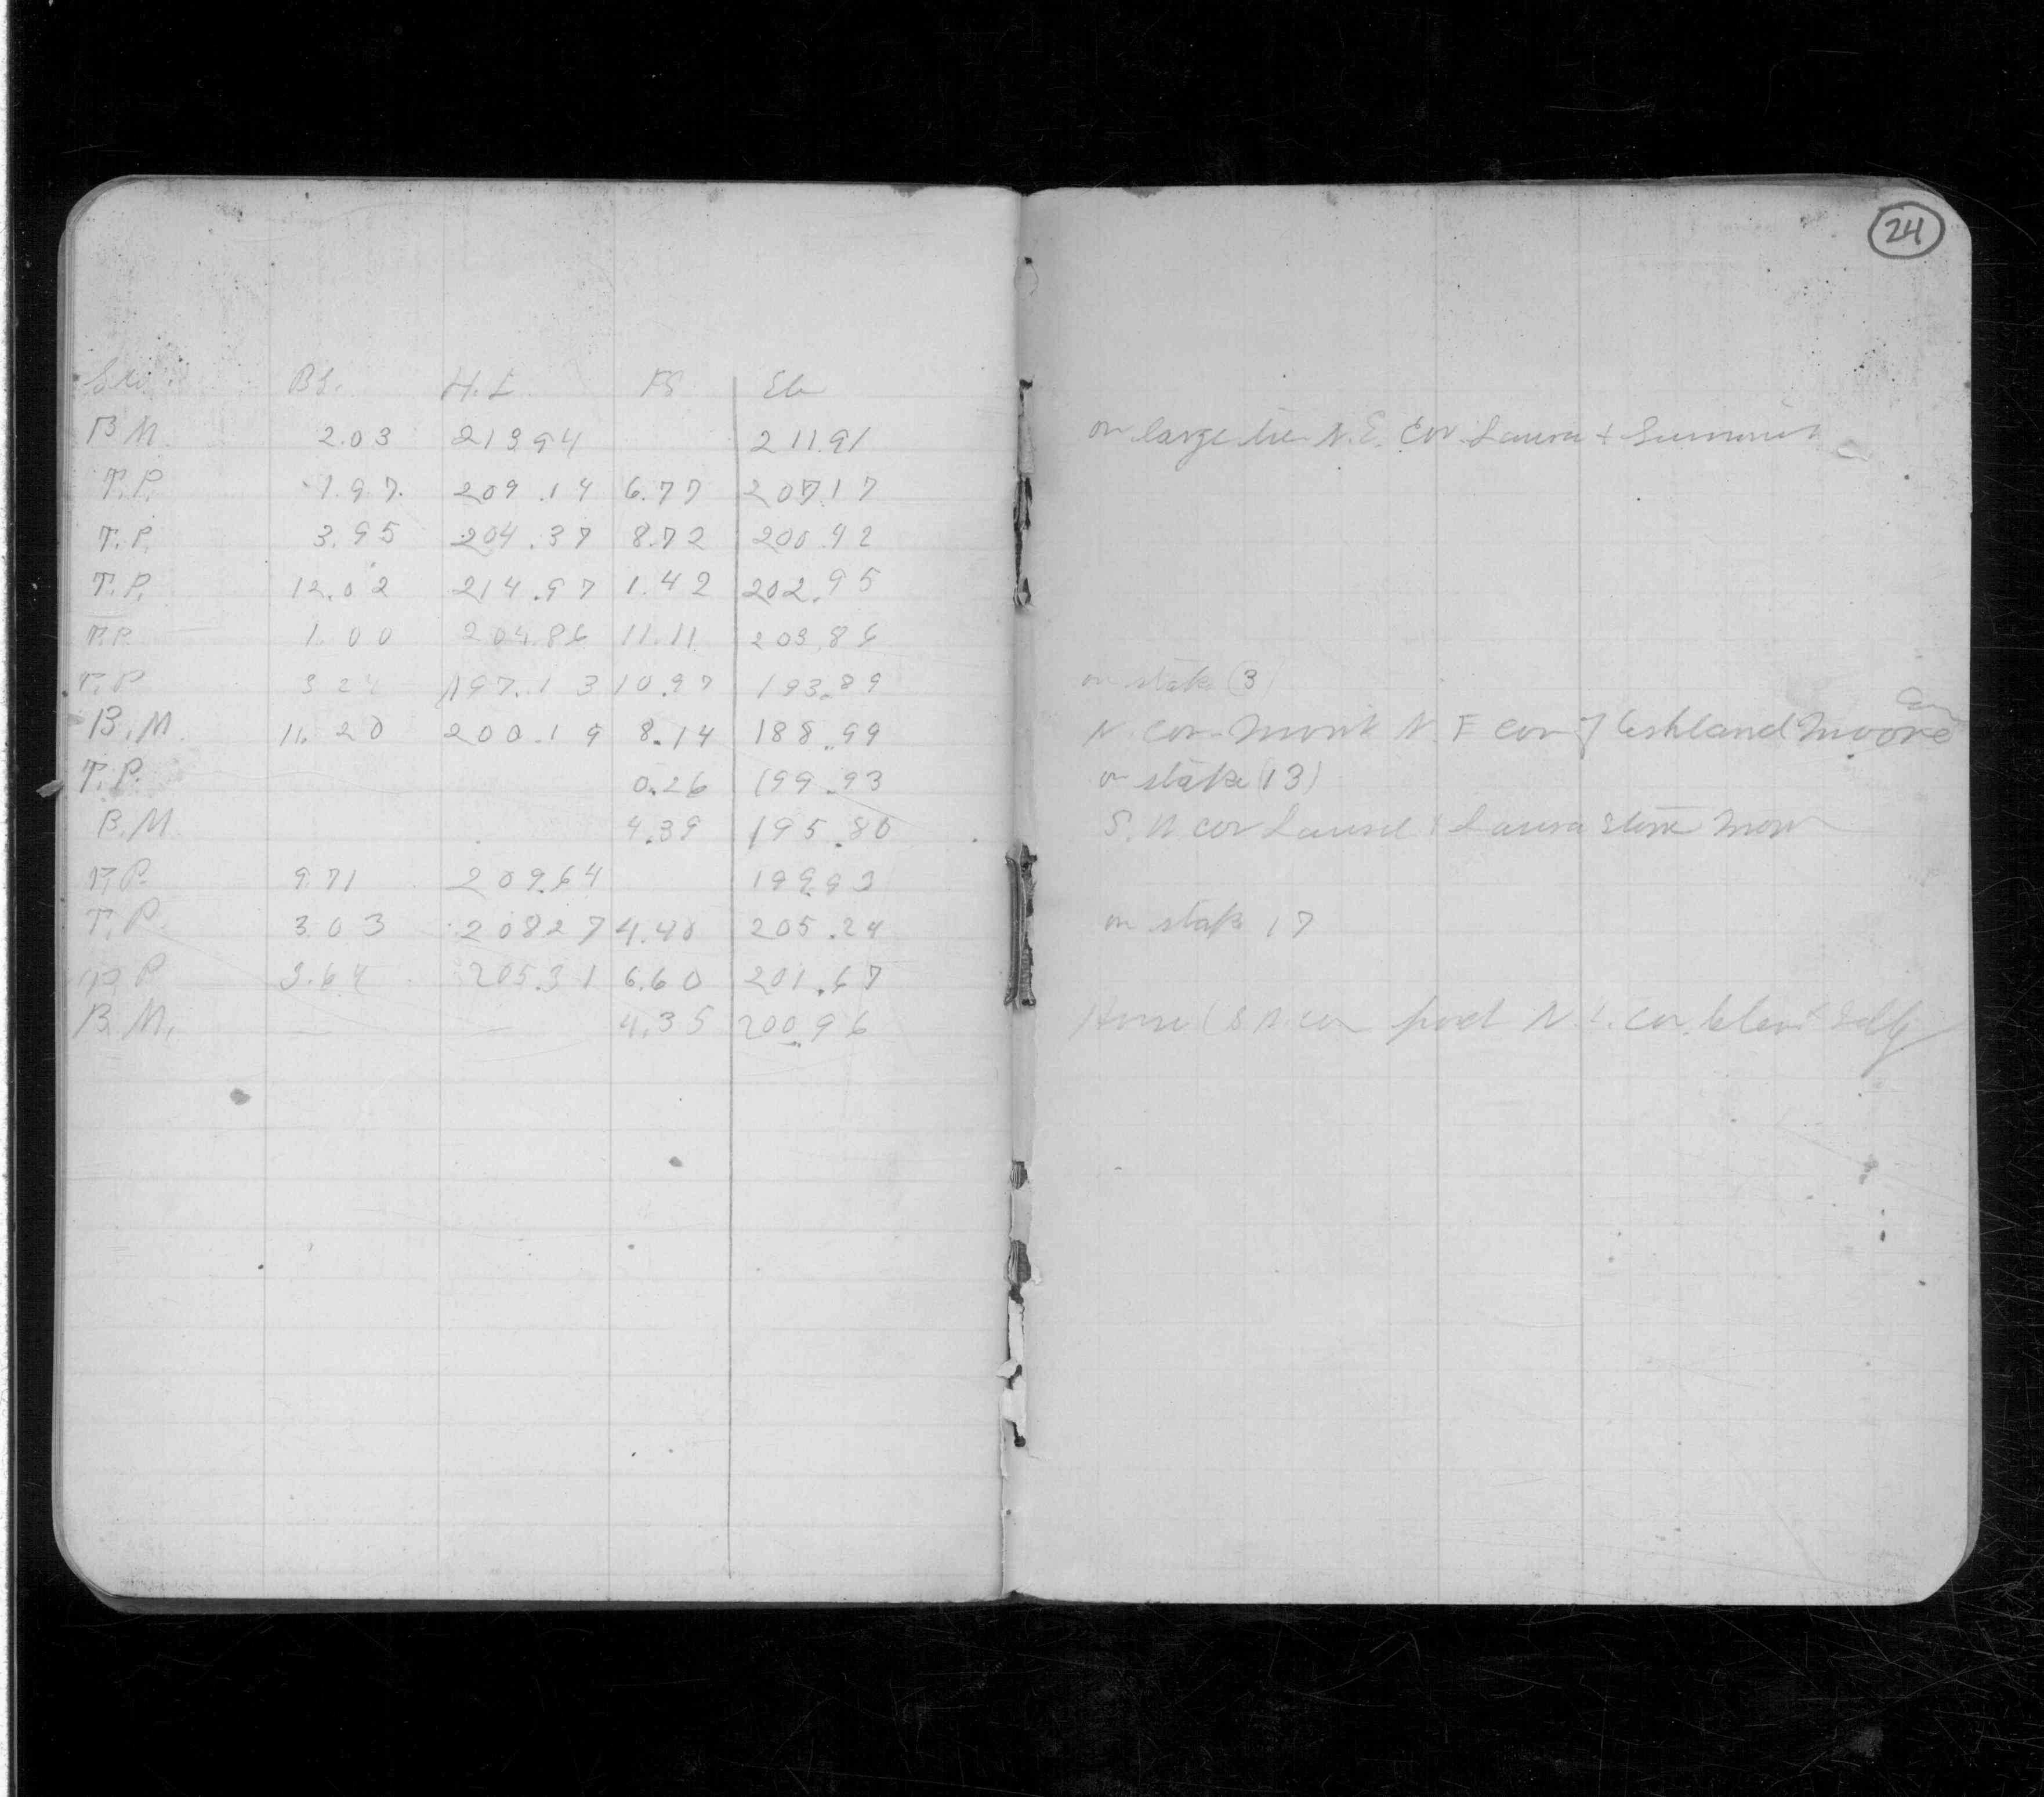 24
Sta. BS. H.I. FS Ele
B M. 2.03 213 94 211.91 on large tree N.E. Cor. Laura + Summit
T.P. 1.97. 209.14 6.77 207.17
T.P. 3.95 204.37 8.72 200.42
T.P. 12.02 214.97 1.42 202.95
T.P. 1.00 204.86 11.11 203.86
T.P. 3 24 197.13 10.97 193.89 on stake (3)
B.M. 11.20 200.19 8.14 188.99 N. cor. Mon't N. E cor of Ashland Moore
T.P. 0.26 199.93 on stake (13)
B.M. 4.39 195.80 S. W cor Laurel & Laura Stone Mon
T.P. 9.71 209.64 199.93
T.P. 3.03 208 27 4.40 205.24 on stake 17
T.P. 3.64 205.31 6.60 201.67
B.M. — — 4.35 200.96 House (S W. cor N. cor.